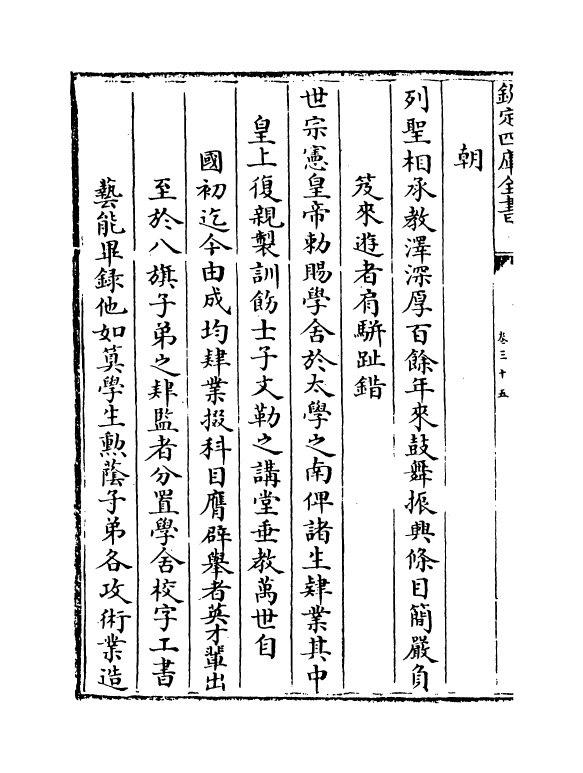 欽定四庫全書
卷三十五
朝
列聖相承教澤深厚百餘年來鼓舞振興條目簡嚴負
笈來遊者肩駢趾錯
世宗憲皇帝勅賜學舍於太學之南俾諸生肄業其中
皇上復親製訓飭士子文勒之講堂垂教萬世自
國初迄今由成均肄業掇科目膺辟舉者英才輩出
至於八旗子弟之肄監者分置學舍校字工書
藝能畢録他如算學生勲蔭子弟各攻術業造